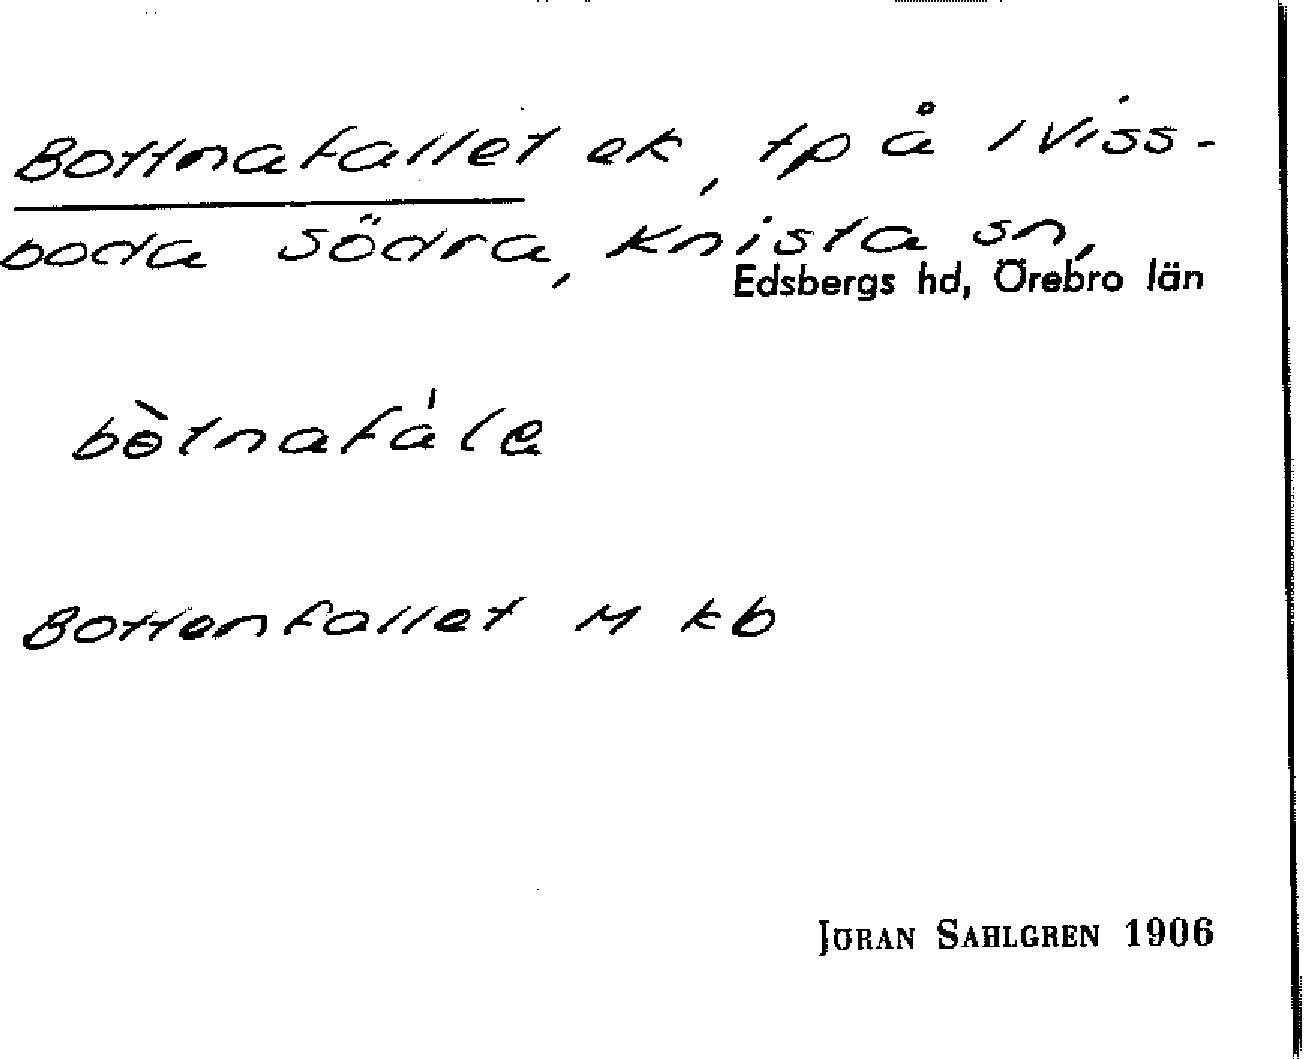 Bottnafallet ek, tp å 1 Viss-
boda södra, Knista sn,
Edsbergs hd, Örebro län
bòtnafále
Bottenfallet M kb
JÖRAN SAHLGREN 1906